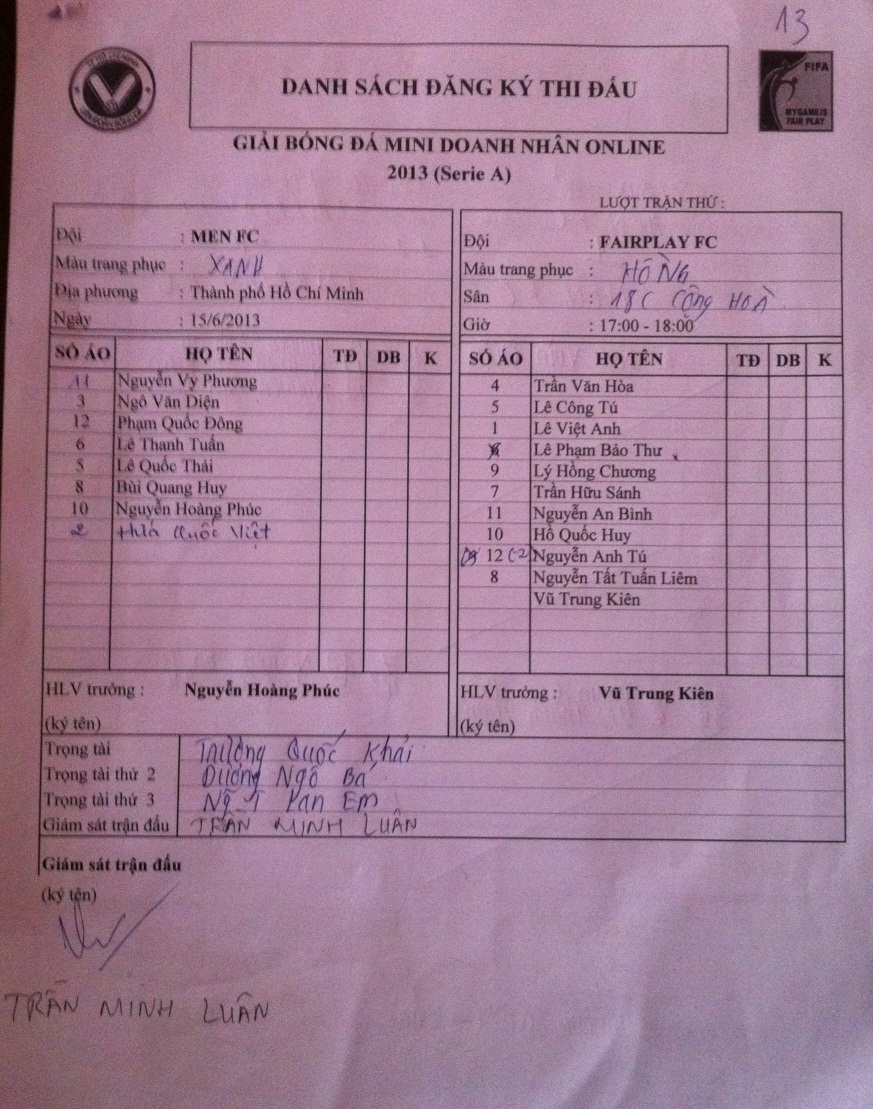 13
FIFA
MYGAME IS
FAIR PLAY
DANH SÁCH ĐĂNG KÝ THI ĐẤU
GIẢI BÓNG ĐÁ MINI DOANH NHÂN ONLINE
2013 (Serie A)
LƯỢT TRẬN THỨ :
Đội : MEN FC
Màu trang phục : XANH
Địa phương : Thành phố Hồ Chí Minh
Ngày : 15/6/2013
Đội : FAIRPLAY FC
Màu trang phục : HỒNG
Sân : 18C CỘNG HOÀ
Giờ : 17:00 - 18:00
SỐ ÁO HỌ TÊN TĐ DB K
11 Nguyễn Vy Phương
3 Ngô Văn Diện
12 Phạm Quốc Đông
6 Lê Thanh Tuấn
5 Lê Quốc Thái
8 Bùi Quang Huy
10 Nguyễn Hoàng Phúc
2 Hứa Quốc Việt
SỐ ÁO HỌ TÊN TĐ DB K
4 Trần Văn Hòa
5 Lê Công Tú
1 Lê Việt Anh
Lê Phạm Bảo Thư
9 Lý Hồng Chương
7 Trần Hữu Sánh
11 Nguyễn An Bình
10 Hồ Quốc Huy
12 Nguyễn Anh Tú
8 Nguyễn Tất Tuấn Liêm
Vũ Trung Kiên
HLV trưởng : Nguyễn Hoàng Phúc
(ký tên)
HLV trưởng : Vũ Trung Kiên
(ký tên)
Trọng tài Trương Quốc Khải
Trọng tài thứ 2 Dương Ngô Bá
Trọng tài thứ 3 Em
Giám sát trận đấu TRẦN MINH LUÂN
Giám sát trận đấu
(ký tên)
TRẦN MINH LUÂN